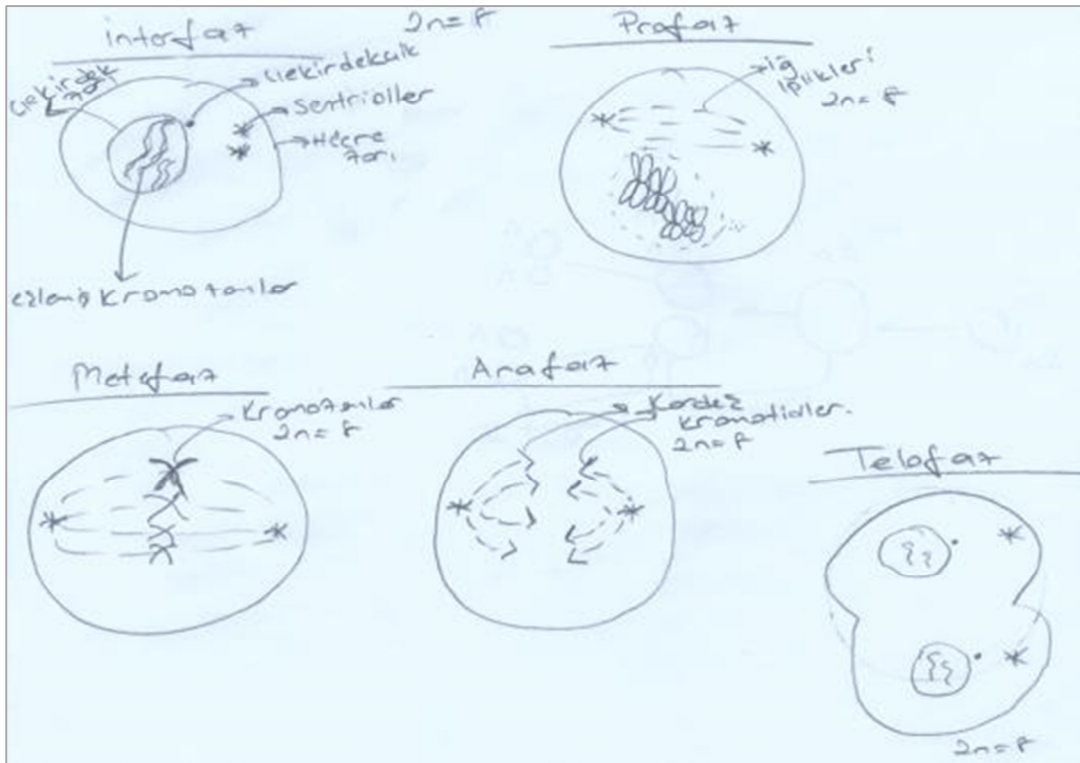 interfaz
2n=8
Çekirdek
zarı
Çekirdekcik
Sentrioller
Hücre
zarı
eşlenmiş kromozomlar
Profaz
iğ
iplikleri
2n=8
Metafaz
kromozomlar
2n=8
Anafaz
Kardeş
kromatidler.
2n=8
Telofaz
2n=8